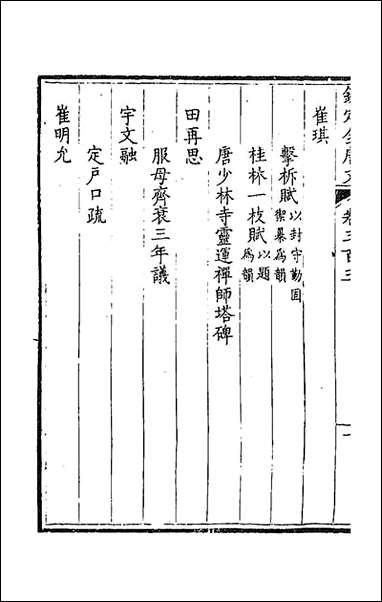 欽定全唐文 卷三百三 一
崔琪
擊柝賦以封守勤固禦暴爲韻
桂林一枝賦以題爲韻
唐少林寺靈運禪師塔碑
田再思
服母齊衰三年議
宇文融
定戶口疏
崔明允